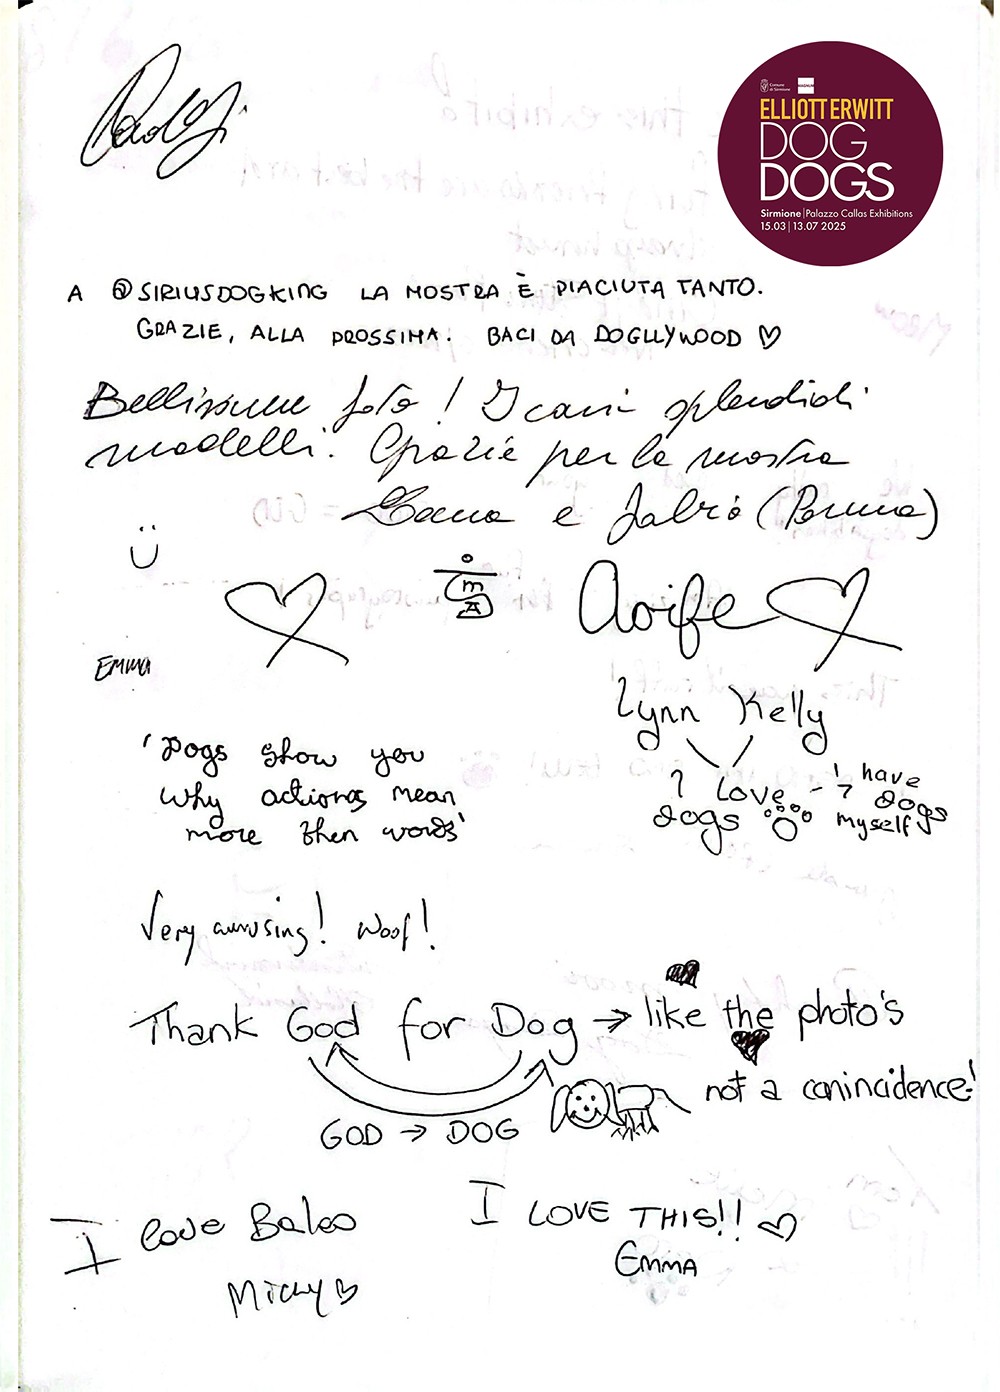 Comune
di Sirmione
MAGNUM
ELLIOTT ERWITT
DOG
DOGS
Sirmione | Palazzo Callas Exhibitions
15.03 | 13.07 2025
A @SIRIUSDOGKING LA MOSTRA È PIACIUTA TANTO.
GRAZIE, ALLA PROSSIMA. BACI DA DOGLLYWOOD ♡
Bellissime foto! I cani splendidi
modelli. Grazie per la mostra
e Fabrio (Parma)
Aoife
EMMA
Lynn Kelly
'Dogs show you
why actions mean
more then words'
I love - I have
dogs dogs
myself
Very amusing! Woof!
Thank God for Dog → like the photo's
not a conincidence!
GOD → DOG
I love Baloo
Micky ♡
I LOVE THIS!! ♡
EMMA